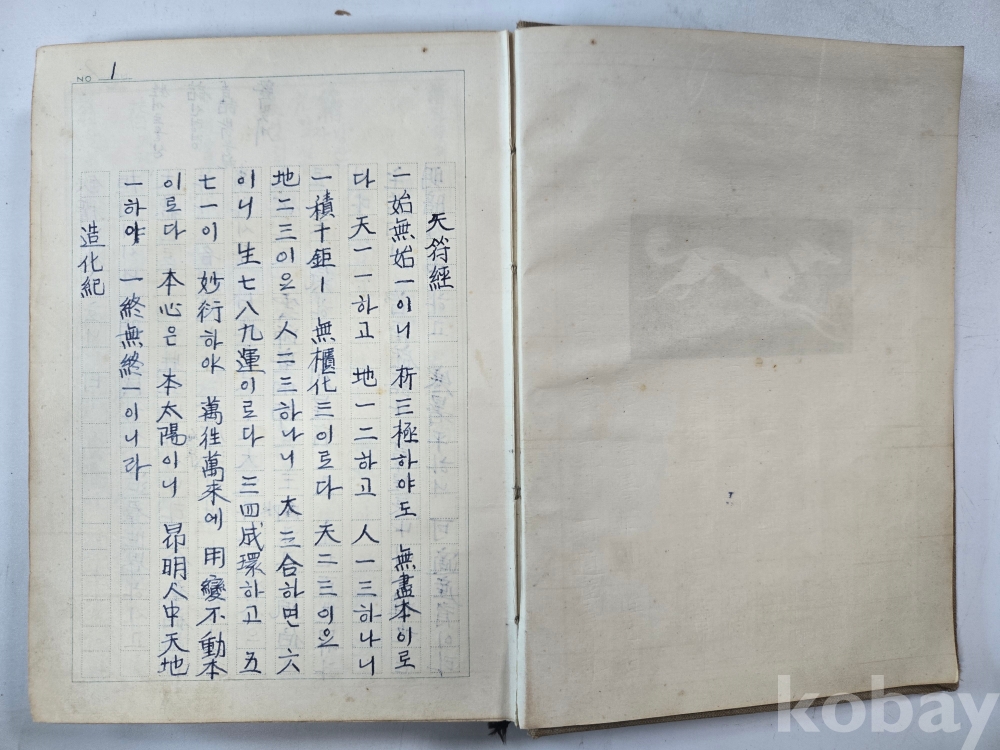 NO 1
天符經
一始無始一이니 析三極하야도 無盡本이로
다 天一一하고 地一二하고 人一三하나니
一積十鉅ㅣ 無櫃化三이로다 天二三이으
地二三이으 人二三하나니 大三合하면 六
이니 生七八九運이로다 三四成環하고 五
七一이 妙衍하야 萬徃萬來에 用變不動本
이로다 本心은 本太陽이니 昂明人中天地
一하야 一終無終一이니라
造化紀
kobay